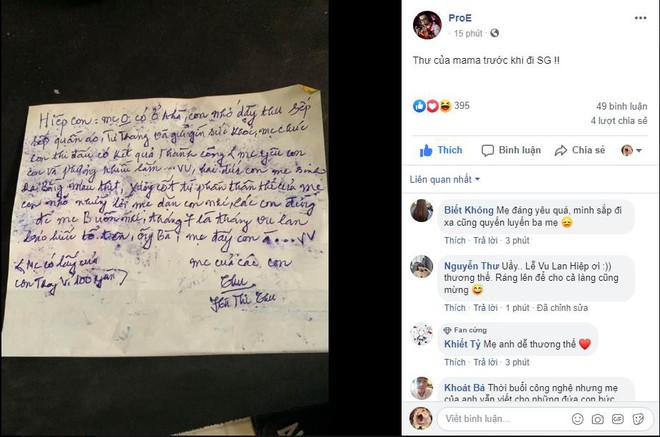 Hiếp con = mẹ O có ở nhà, con nhớ dậy thu xếp
quần áo, Tư Trang và giữ gìn sức khỏe, mẹ chúc
con thi đấu có kết quả Thành công & mẹ yêu con
con và phượng nhiều lắm ... VV, hai đứa con mẹ
máu thịt,
con nhớ những lời mẹ dặn con nhé, các con đừng
để mẹ Buồn nhé, tháng 7 là tháng vu lan
báo hiếu tổ tiên, ông Bà, mẹ đấy con ạ ... VV
& mẹ có lấy của
con Thay Vì 100 ngàn
mẹ của các con
Thu
Thị Thu
ProE
15 phút
Thư của mama trước khi đi SG !!
395
49 bình luận
4 lượt chia sẻ
Thích
Bình luận
Chia sẻ
Liên quan nhất
Biết Không Mẹ đáng yêu quá, mình sắp đi
xa cũng quyến luyến ba mẹ
Thích · Trả lời · 3 phút
Nguyễn Thư Uầy.. Lễ Vu Lan Hiệp ơi :))
thương thế. Ráng lên để cho cả làng cũng
mừng
Thích · Trả lời · 1 phút · Đã chỉnh sửa
Fan cứng
Khiết Tỷ Mẹ anh dễ thương thế
Thích · Trả lời · 3 phút
Khoát Bá Thời buổi công nghệ nhưng mẹ
của anh vẫn viết cho những đứa con bức
Viết bình luận...
GIF